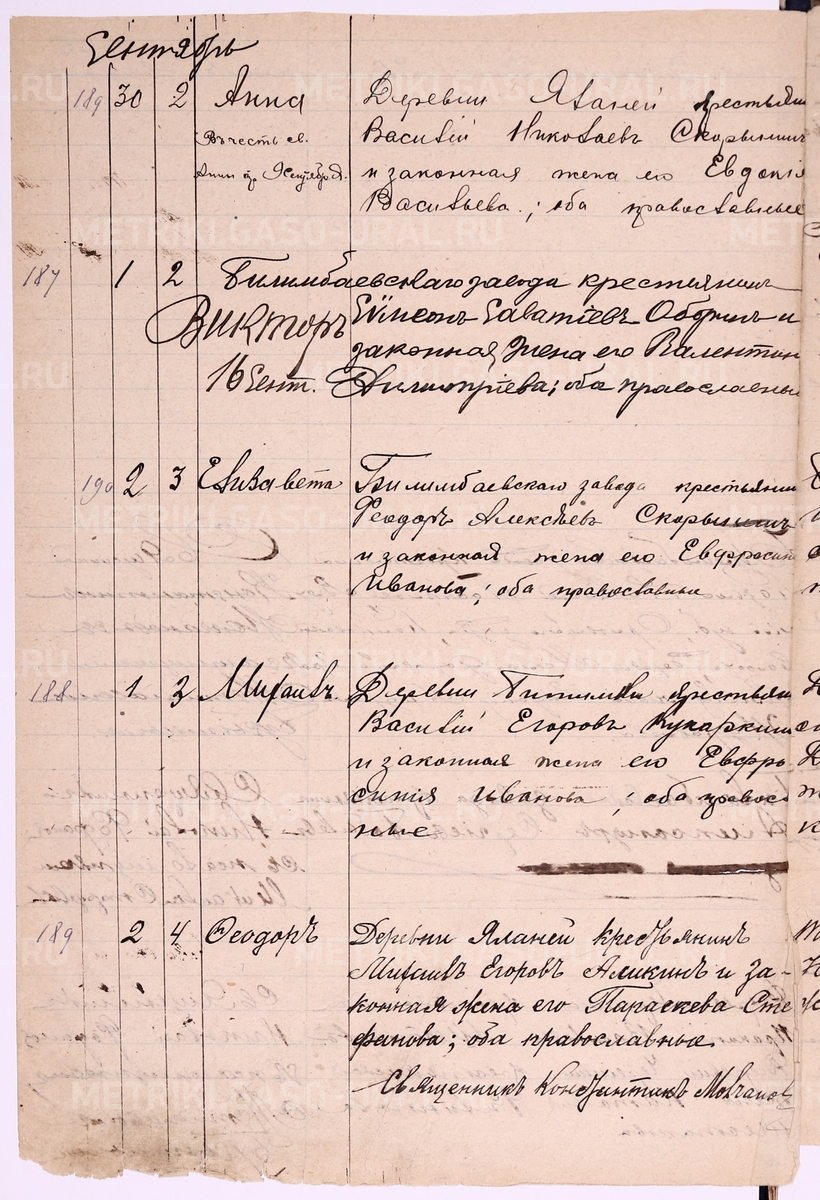 Сентябрь
189 30 2 Анна Деревни Яланей крестьянин
Въ честь св. Василій Николаевъ Скорынинъ
Анны и законная жена его Евдокія
Васильева; оба православные
187 1 2 Билимбаевскаго завода крестьянинъ
Викторъ Савватіевъ и
законная жена его Валентин
16 Сент. Димитріева; оба православны
190 2 3 Елизавета Билимбаевскаго завода крестьянин
Ѳеодоръ Алексѣевъ Скорынинъ
и законная жена его Евфросин
Иванова; оба православные
188 1 3 Михаилъ. Деревни крестьян
Василій Егоровъ Кукаркин
и законная жена его Евфро
синія Иванова; оба правос
ные
189 2 4 Ѳеодоръ Деревни Яланей крестьянинъ
Михаилъ Егоровъ Аликинъ и за-
конная жена его Параскева Сте
фанова; оба православные
Священникъ Константинъ Молчанов